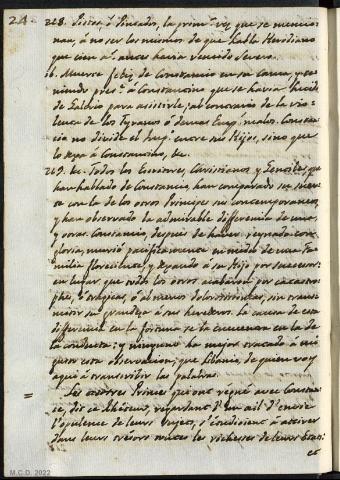 24
228. Pictos, ô Pincados, la prim.ª vez que se mencio-
nan, â no ser los mismos de que habla Herodiano
que cien a.s antes havia vencido Severo.
ib. Muerte feliz de Constancio en su cama, y te-
niendo pres.te â Constancino que se havia huido
de Galerio para asistirle; al contrario de la vio-
lencia de los Tyranos ô demas Emp.res malos. Constan-
cio no divide el Imp.o entre sus Hijos, sino que
lo dexa â Constancino, &c.
229. &c. Todos los Escritores, Christianos y Gentiles, que
han hablado de Constancio, han comparado su suer-
te con la de los otros Principes sus contemporaneos,
y han observado la admirable differencia de unos,
y otros. Constancio, después de haver reynado con
gloria, murió pacificamente en medio de una Fa-
milia floreciente, y dexando â su Hijo por successor:
en lugar que todos los otros acabaron por catastro-
phes, ô tragicas, ô al menos dolorosissimas, sin trans-
mitir su grandeza â sus herederos. La causa de esta
differencia en la fortuna se ha encuentran en la de
la conducta: y ninguno ha mejor tratado â mi
gusto esta observacion, que Libanio, de quien voy
aquí â transcribir las palabras.
= Les autres Princes qui ont régné avec Constan-
ce, dit ce Rhéteur, regardant d'un œil d'envie
l'opulence de leurs sujets, s'étudioient à attirer
dans leurs trésors toutes les richesses de leurs Etats:
et
M.C.D. 2022